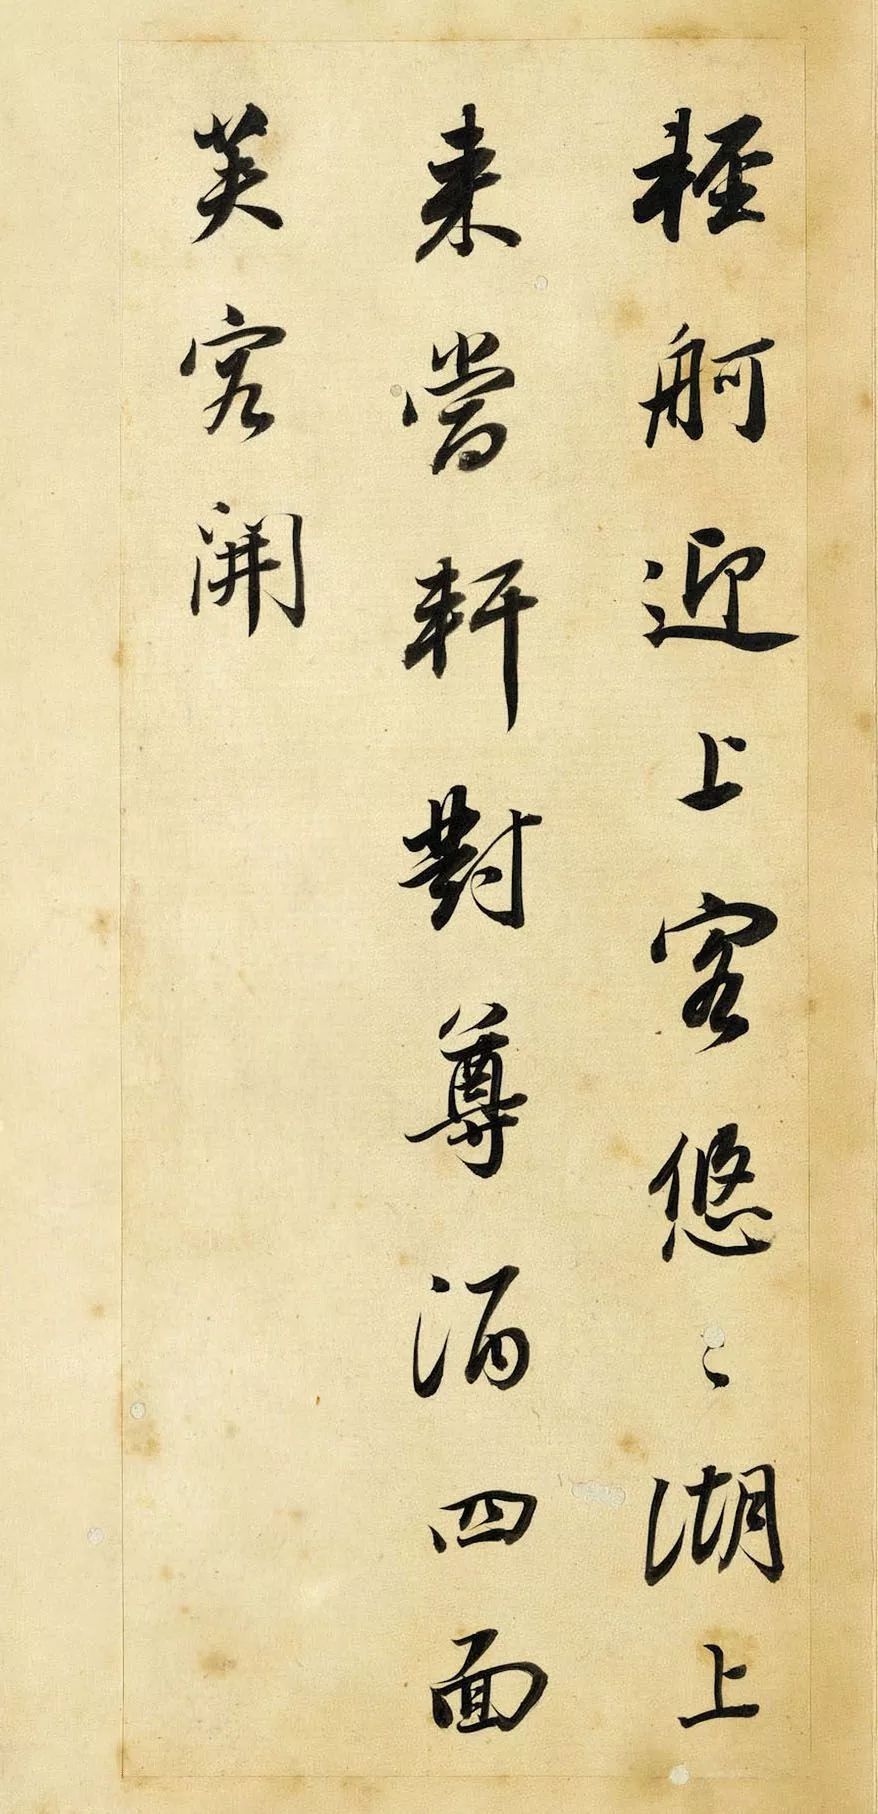 輕舸迎上客悠〻湖上
来當軒對尊酒四面
芙容開